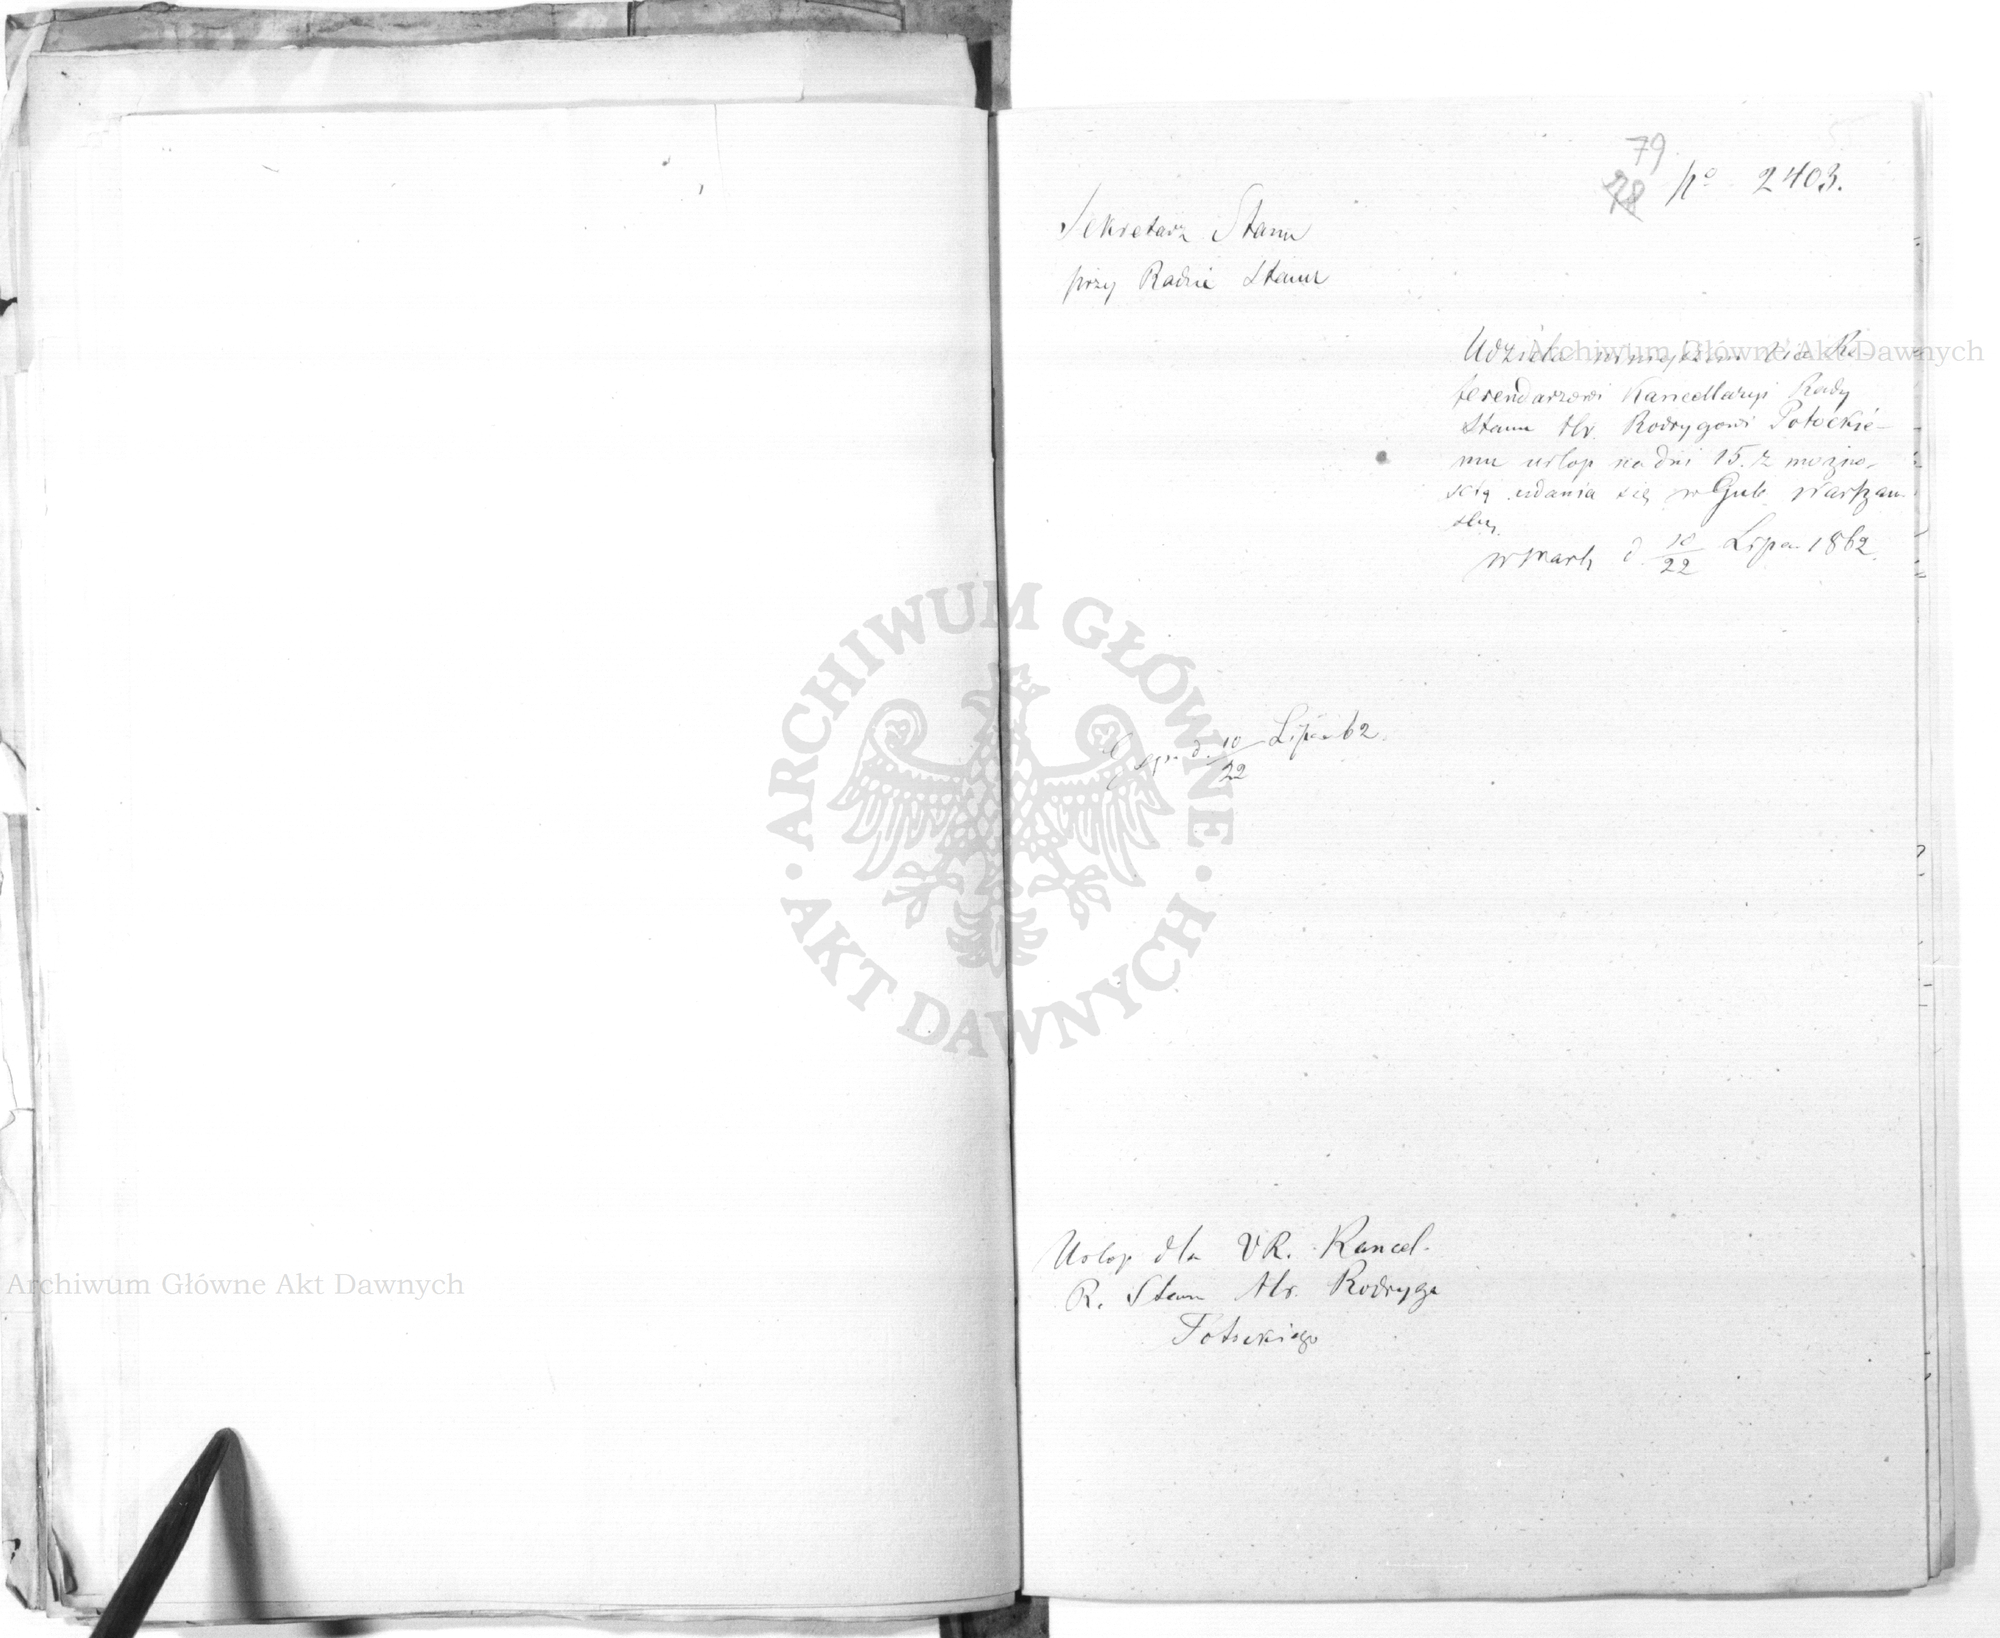 79
78
No 2403.
Sekretarz Stanu
przy Radzie Stanu
Udziela niniejszem Vice Re-
ferendarzowi Kancellaryi Rady
Stanu Hr. Rodrygowi Potockie-
mu urlop na dni 15. z możno-
ścią udania się w Gub. Warszaw-
skiej.
w Warsz d. 10/22 Lipca 1862.
d. 10/22 Lipca 62.
Urlop dla VR. Kancel.
R. Stanu Hr. Rodryga
Potockiego
Archiwum Główne Akt Dawnych
ARCHIWUM GŁÓWNE AKT DAWNYCH
Archiwum Główne Akt Dawnych